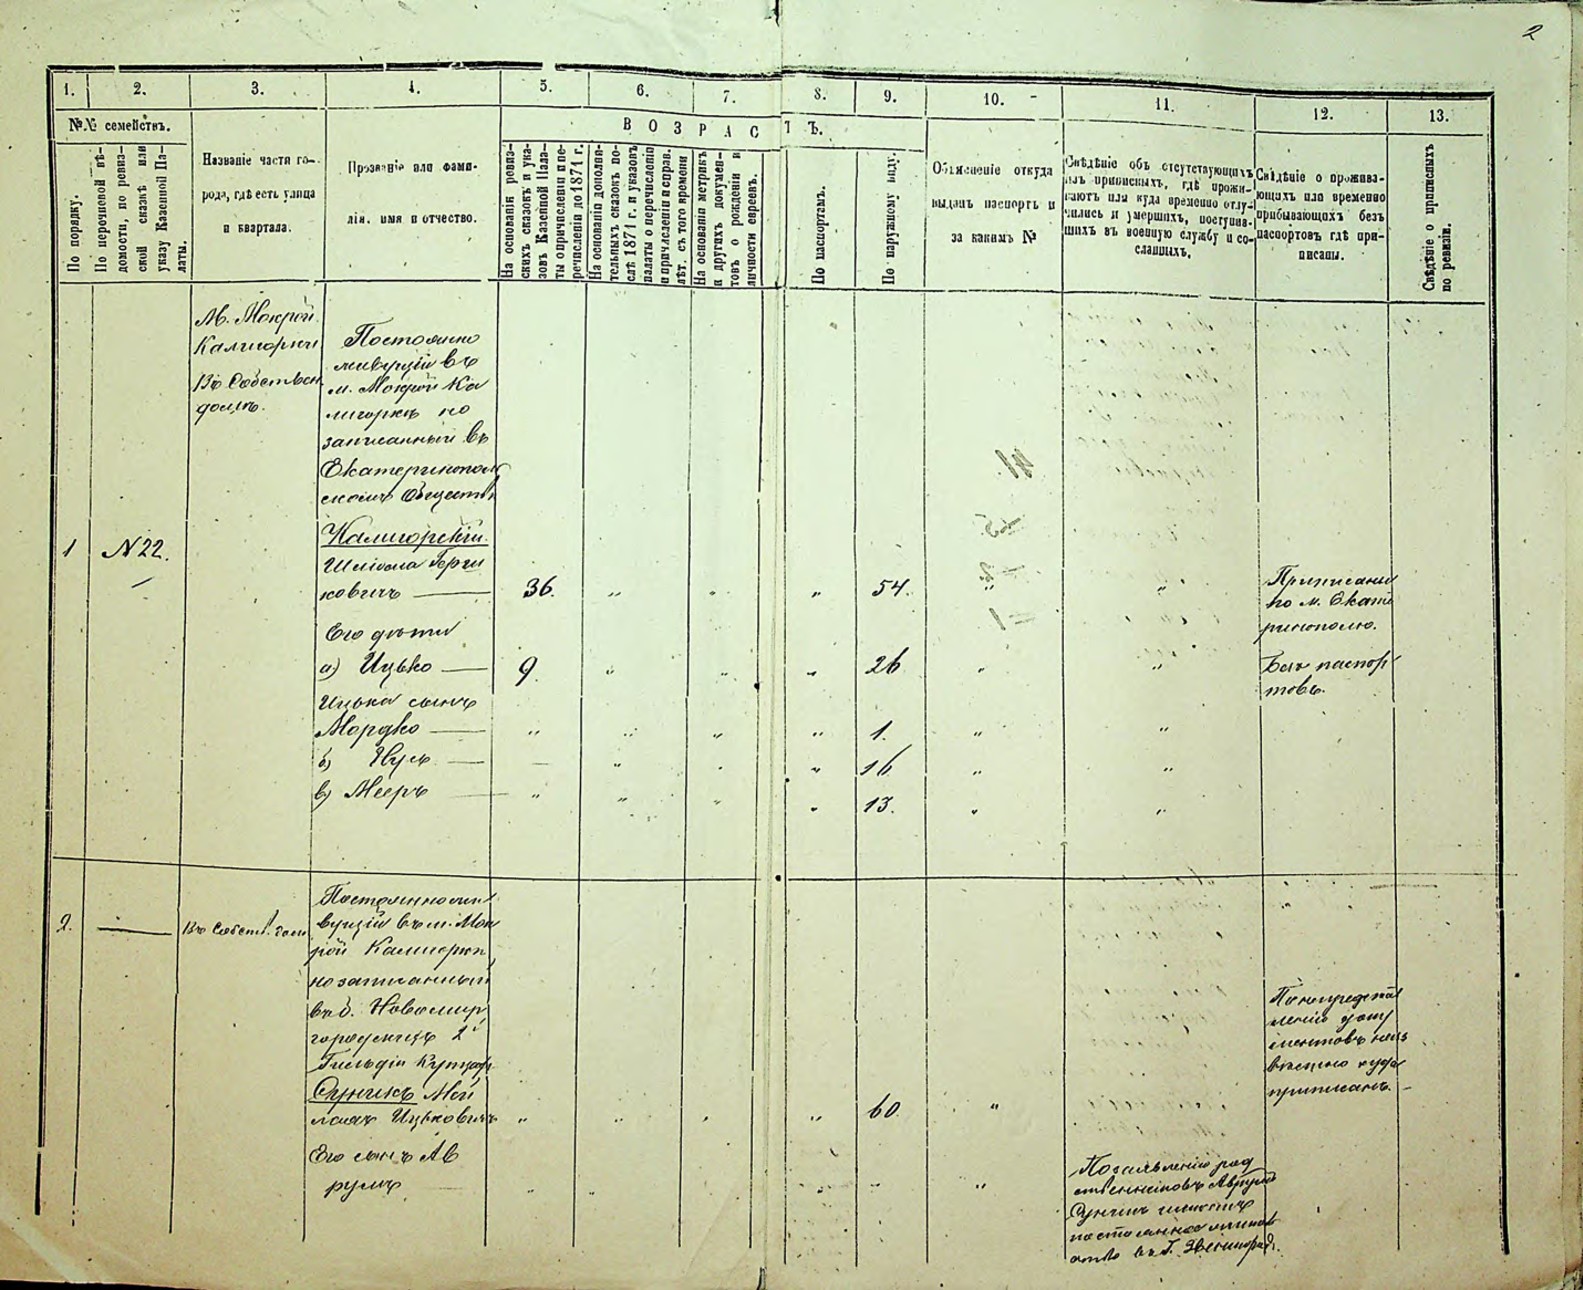 2
1. 2. 3. 4. 5. 6. 7. 8. 9. 10. 11. 12. 13.
№№ семействъ.
По порядку.
По перечневой вѣ-
домости, по ревиз-
ской сказкѣ или
указу Казенной Па-
латы.
Названіе части го-
рода, гдѣ есть улица
и квартала.
Прозваніе или фами-
лія, имя и отчество.
ВОЗРАСТЪ.
На основаніи ревиз-
скихъ сказокъ и ука-
зовъ Казенной Пала-
ты о причисленіи и пе-
речисленіи до 1871 г.
На основаніи дополни-
тельныхъ сказокъ по-
слѣ 1871 г. и указовъ
палаты о перечисленіи
и причисленіи и справ.
лѣт. съ того времени
На основаніи метрикъ
и другихъ докумен-
товъ о рожденіи и
личности евреевъ.
По паспортамъ.
По наружному виду.
Объясненіе откуда
выданъ паспортъ и
за какимъ №
Свѣдѣніе объ отсутствующихъ
изъ приписныхъ, гдѣ прожи-
ваютъ или куда временно отлу-
чились и умершихъ, поступив-
шихъ въ военную службу и со-
сланныхъ.
Свѣдѣніе о прожива-
ющихъ или временно
прибывающихъ безъ
паспортовъ гдѣ при-
писаны.
Свѣдѣніе о приписныхъ
по ревизіи.
М. Мокрой
Калигоркѣ
Въ Собствен.
домѣ.
Постоянно
живущій въ
м. Мокрой Ка
лигоркѣ но
записанный въ
Екатеринополь
скомъ Обществѣ
1 N 22.
Калигорскій
Шліома Герш
ковичъ — 36. „ „ „ 54. „ „
Приписаны
по м. Екате
ринополю.
Его дѣти
а) Ицько — 9. „ „ „ 26 „ „
Безъ паспор
товъ.
Ицька сынъ
Мордко — „ „ „ „ 1. „ „
б) Нусъ — — „ „ „ 16 „ „
в) Мееръ — „ „ „ „ 13. „ „
2. — Въ Собств. дом
Постоянно жи
вущій въ м. Мок
рой Калигоркѣ
но записанный
въ Новомир
городскихъ 2й
Гильдіи Купцовъ
Суникъ Мой
Ицьковичъ „ „ „ „ 60 „
По непредстав
ленію доку
ментовъ неиз
вѣстно куда
приписанъ. —
Его сынъ Ав
румъ — „ „ „ „ „
По заявленію род
ственниковъ Аврумъ
Суникъ имѣетъ
постоянное житель
ство въ Г. Звенигород.